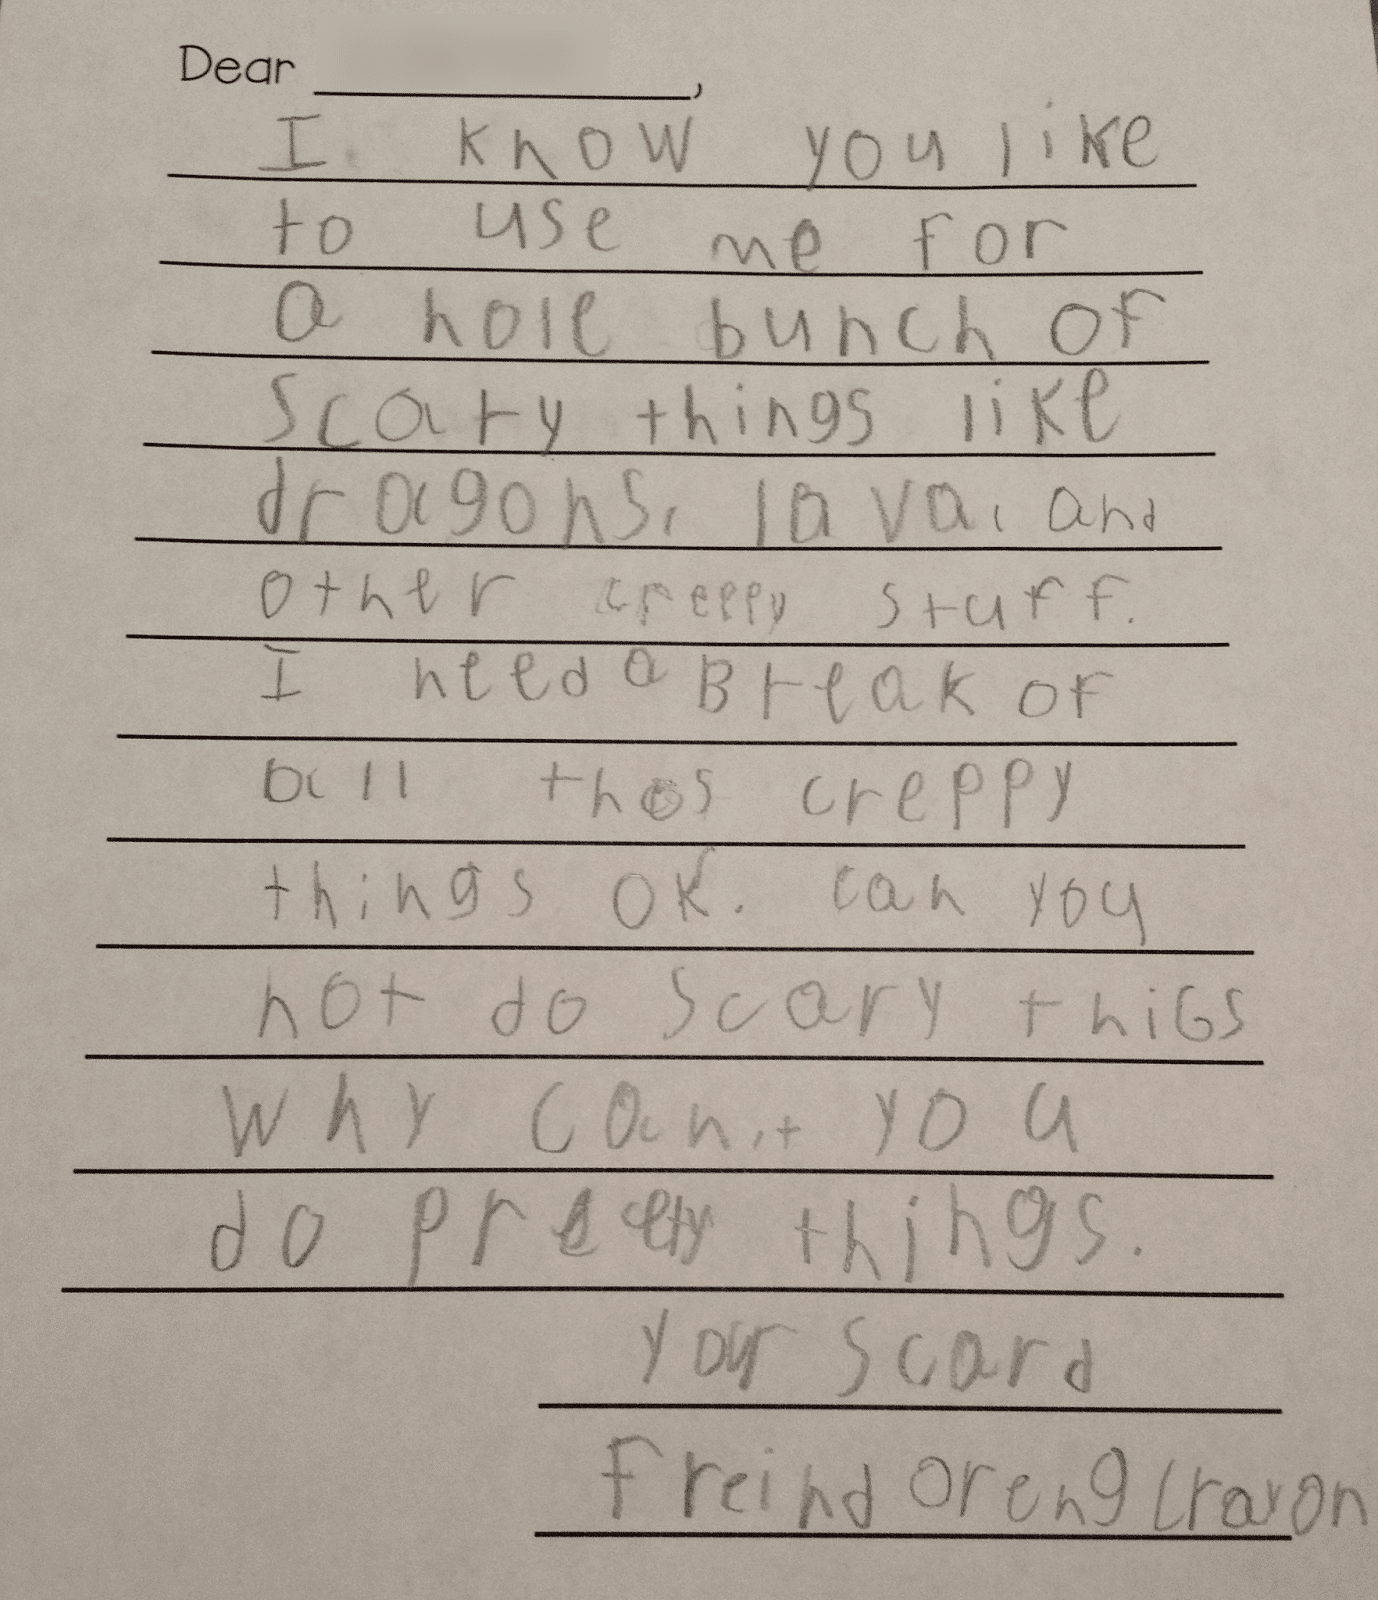 Dear ,
I know you like
to use me for
a hole bunch of
scary things like
dragons, lava, and
other creepy stuff.
I need a Break of
all thos creppy
things ok. can you
not do scary thiGs
why can,t you
do pretty things.
your scard
freind oreng crayon